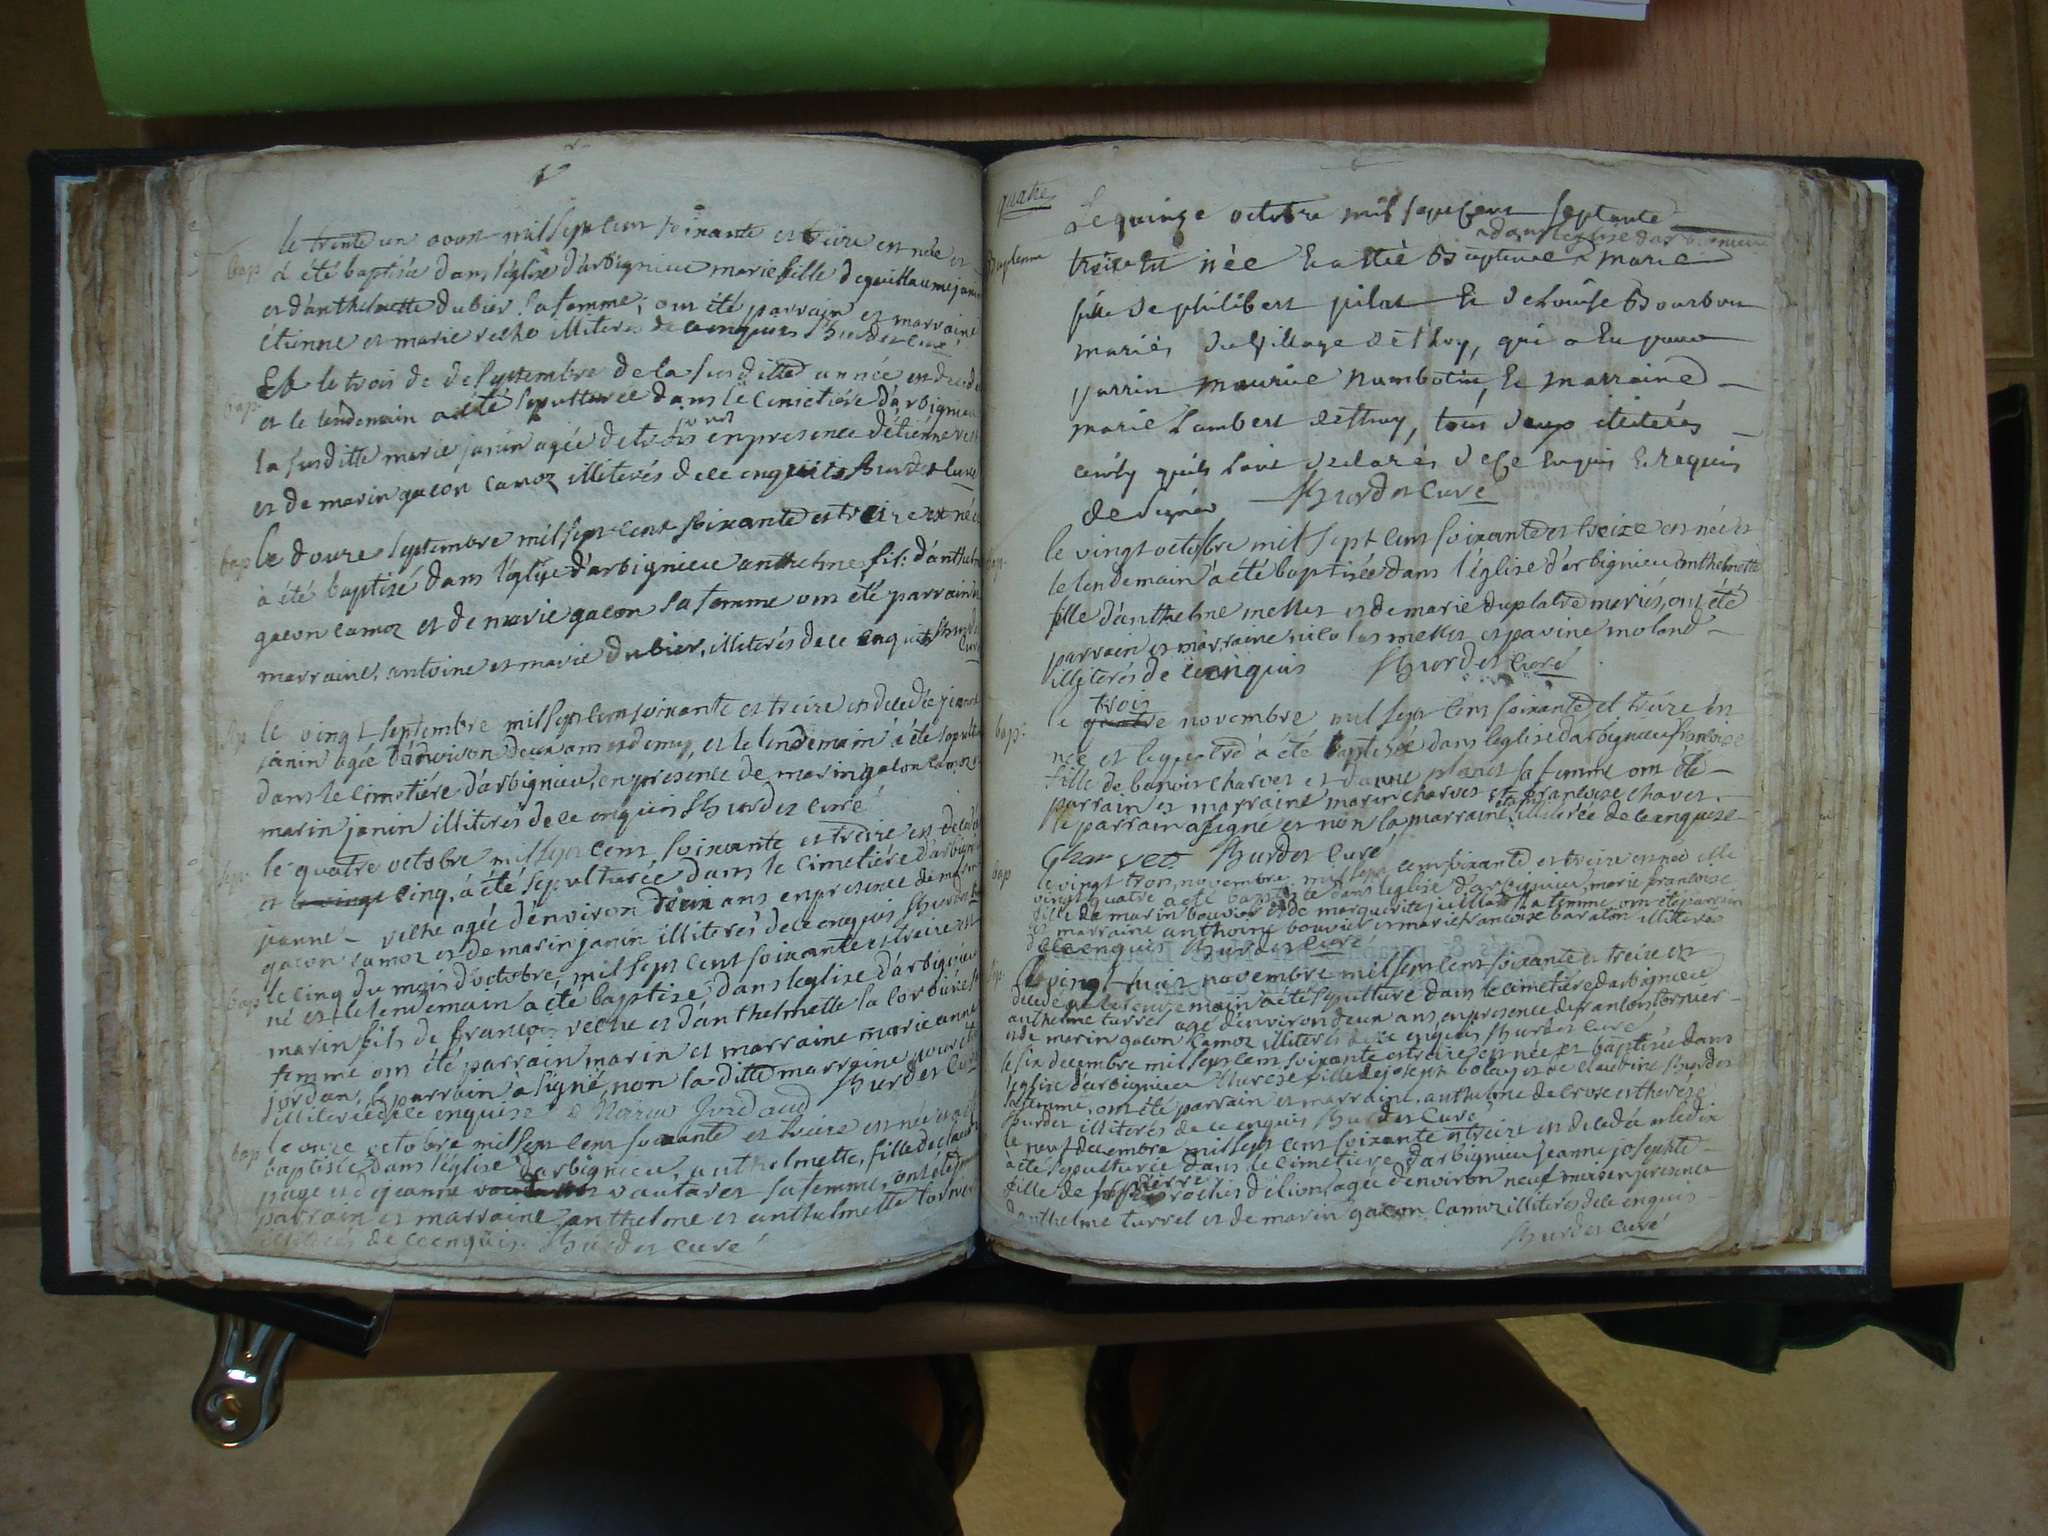 le trente un aout mil sept cent soixante et treize est née et
bap a été baptisée dans l'église d'arbignieu marie fille de guillaume janin
et d'anthelmette dubier sa femme, ont été parrain et marraine
étienne et marie velhe illiterés de ce enquis hurdet curé
le trois de septembre de la susditte année est decedée
et le lendemain a été sepulturée dans le cimetiére d'arbignieu
la susditte marie janin agée de trois jours en presence d'étienne
et de marin gacon camoz illiterés de ce enquis hurdet curé
bap le douze septembre mil sept cent soixante et treize est né et
a été baptisé dans l'église d'arbignieu anthelme fils d'anthelme
gacon camoz et de marie gacon sa femme ont été parrain et
marraine, antoine et marie dubier, illiterés de ce enquis hurdet
curé
sep le vingt septembre mil sept cent soixante et treize est decedée
janin agée d'environ deux ans et demy, et le lendemain a été sepulturée
dans le cimetiére d'arbignieu, en présence de marin gacon camoz et
marin janin illiterés de ce enquis hurdet curé
sep. le quatre octobre mil sept cent soixante et treize est decedée
et le vingt cinq, a été sepulturée dans le cimetiére d'arbignieu
jeanne velhe agée d'environ deux ans en presence de marin
gacon camoz et de marin janin illiterés de ce enquis hurdet curé
bap le cinq du mois d'octobre, mil sept cent soixante et treize est
né et le lendemain a été baptisé dans l'eglise d'arbignieu
marin fils de francois velhe et d'anthelmette la cordiére sa
femme ont été parrain marin et marraine marie anne
jordan, le parrain a signé, non la ditte marraine pour être
illiterée de ce enquise Marin Jordand hurdet curé
bap le onze octobre mil sept cent soixante et treize est née et a été
baptisée dans l'église d'arbignieu, anthelmette, fille de claude
page et de jeanne vautaret sa femme, ont été
parrain et marraine anthelme et anthelmette tornier
illiterés de ce enquis. hurdet curé
quatre
Baptesme Le quinze octobre mil sept cent septante
a dans l'église d'arbignieu
treize est née et a été Baptisée marie
fille de philibert pilat et de Louise Bourbon
mariés du village de thoy, qui a eu pour
parrin maurice numbotin, et marraine
marie Lambert de thoy, tous deux illiterés
ainsy qu'ils l'ont declarés de ce enquis et requis
de signer hurdet curé
bap. le vingt octobre mil sept cent soixante et treize est née et
le lendemain a été baptisée dans l'église d'arbignieu anthelmette
fille d'anthelme mettet et de marie duplatre mariés, ont été
parrain et marraine nicolas mettet et pavine moland
illiterés de ce enquis hurdet curé
trois
bap: le quatre novembre mil sept cent soixante et treize est
née et le quatre a été baptisée dans l'eglise d'arbignieu francoise
fille de benoit charvet et d'anne planet sa femme ont été
parrain et marraine marin charvet et francoise chavet.
le parrain a signé et non la marraine étant illiterée de ce enquise
Charvet hurdet curé
bap le vingt trois novembre mil sept cent soixante et treize est née et le
vingt quatre a été baptisée dans l'eglise d'arbignieu, marie francoise
fille de marin bouvier et de marguerite juillat sa femme ont été parrain
et marraine anthoine bouvier et marie francoise baraton illiterés
de ce enquis hurdet curé
sep. le vingt huit novembre mil sept cent soixante et treize est
decedé et le lendemain a été sepulturé dans le cimetiére d'arbignieu
anthelme turrel agé d'environ deux ans en presence de francois tornier
et de marin gacon camoz illiterés de ce enquis hurdet curé
le six decembre mil sept cent soixante et treize est née et baptisée dans
l'église d'arbignieu therese fille de joseph bolay et de claudine hurdet
sa femme, ont été parrain et marraine anthelme de crose et therése
hurdet illiterés de ce enquis hurdet curé
le neuf decembre mil sept cent soixante et treize est decedée et le dix
a été sepulturée dans le cimetiere d'arbignieu jeanne josephte
fille de pierre rochet de lion, agée d'environ neuf mois en presence
d'anthelme turrel et de marin gacon camoz illiterés de ce enquis
hurdet curé